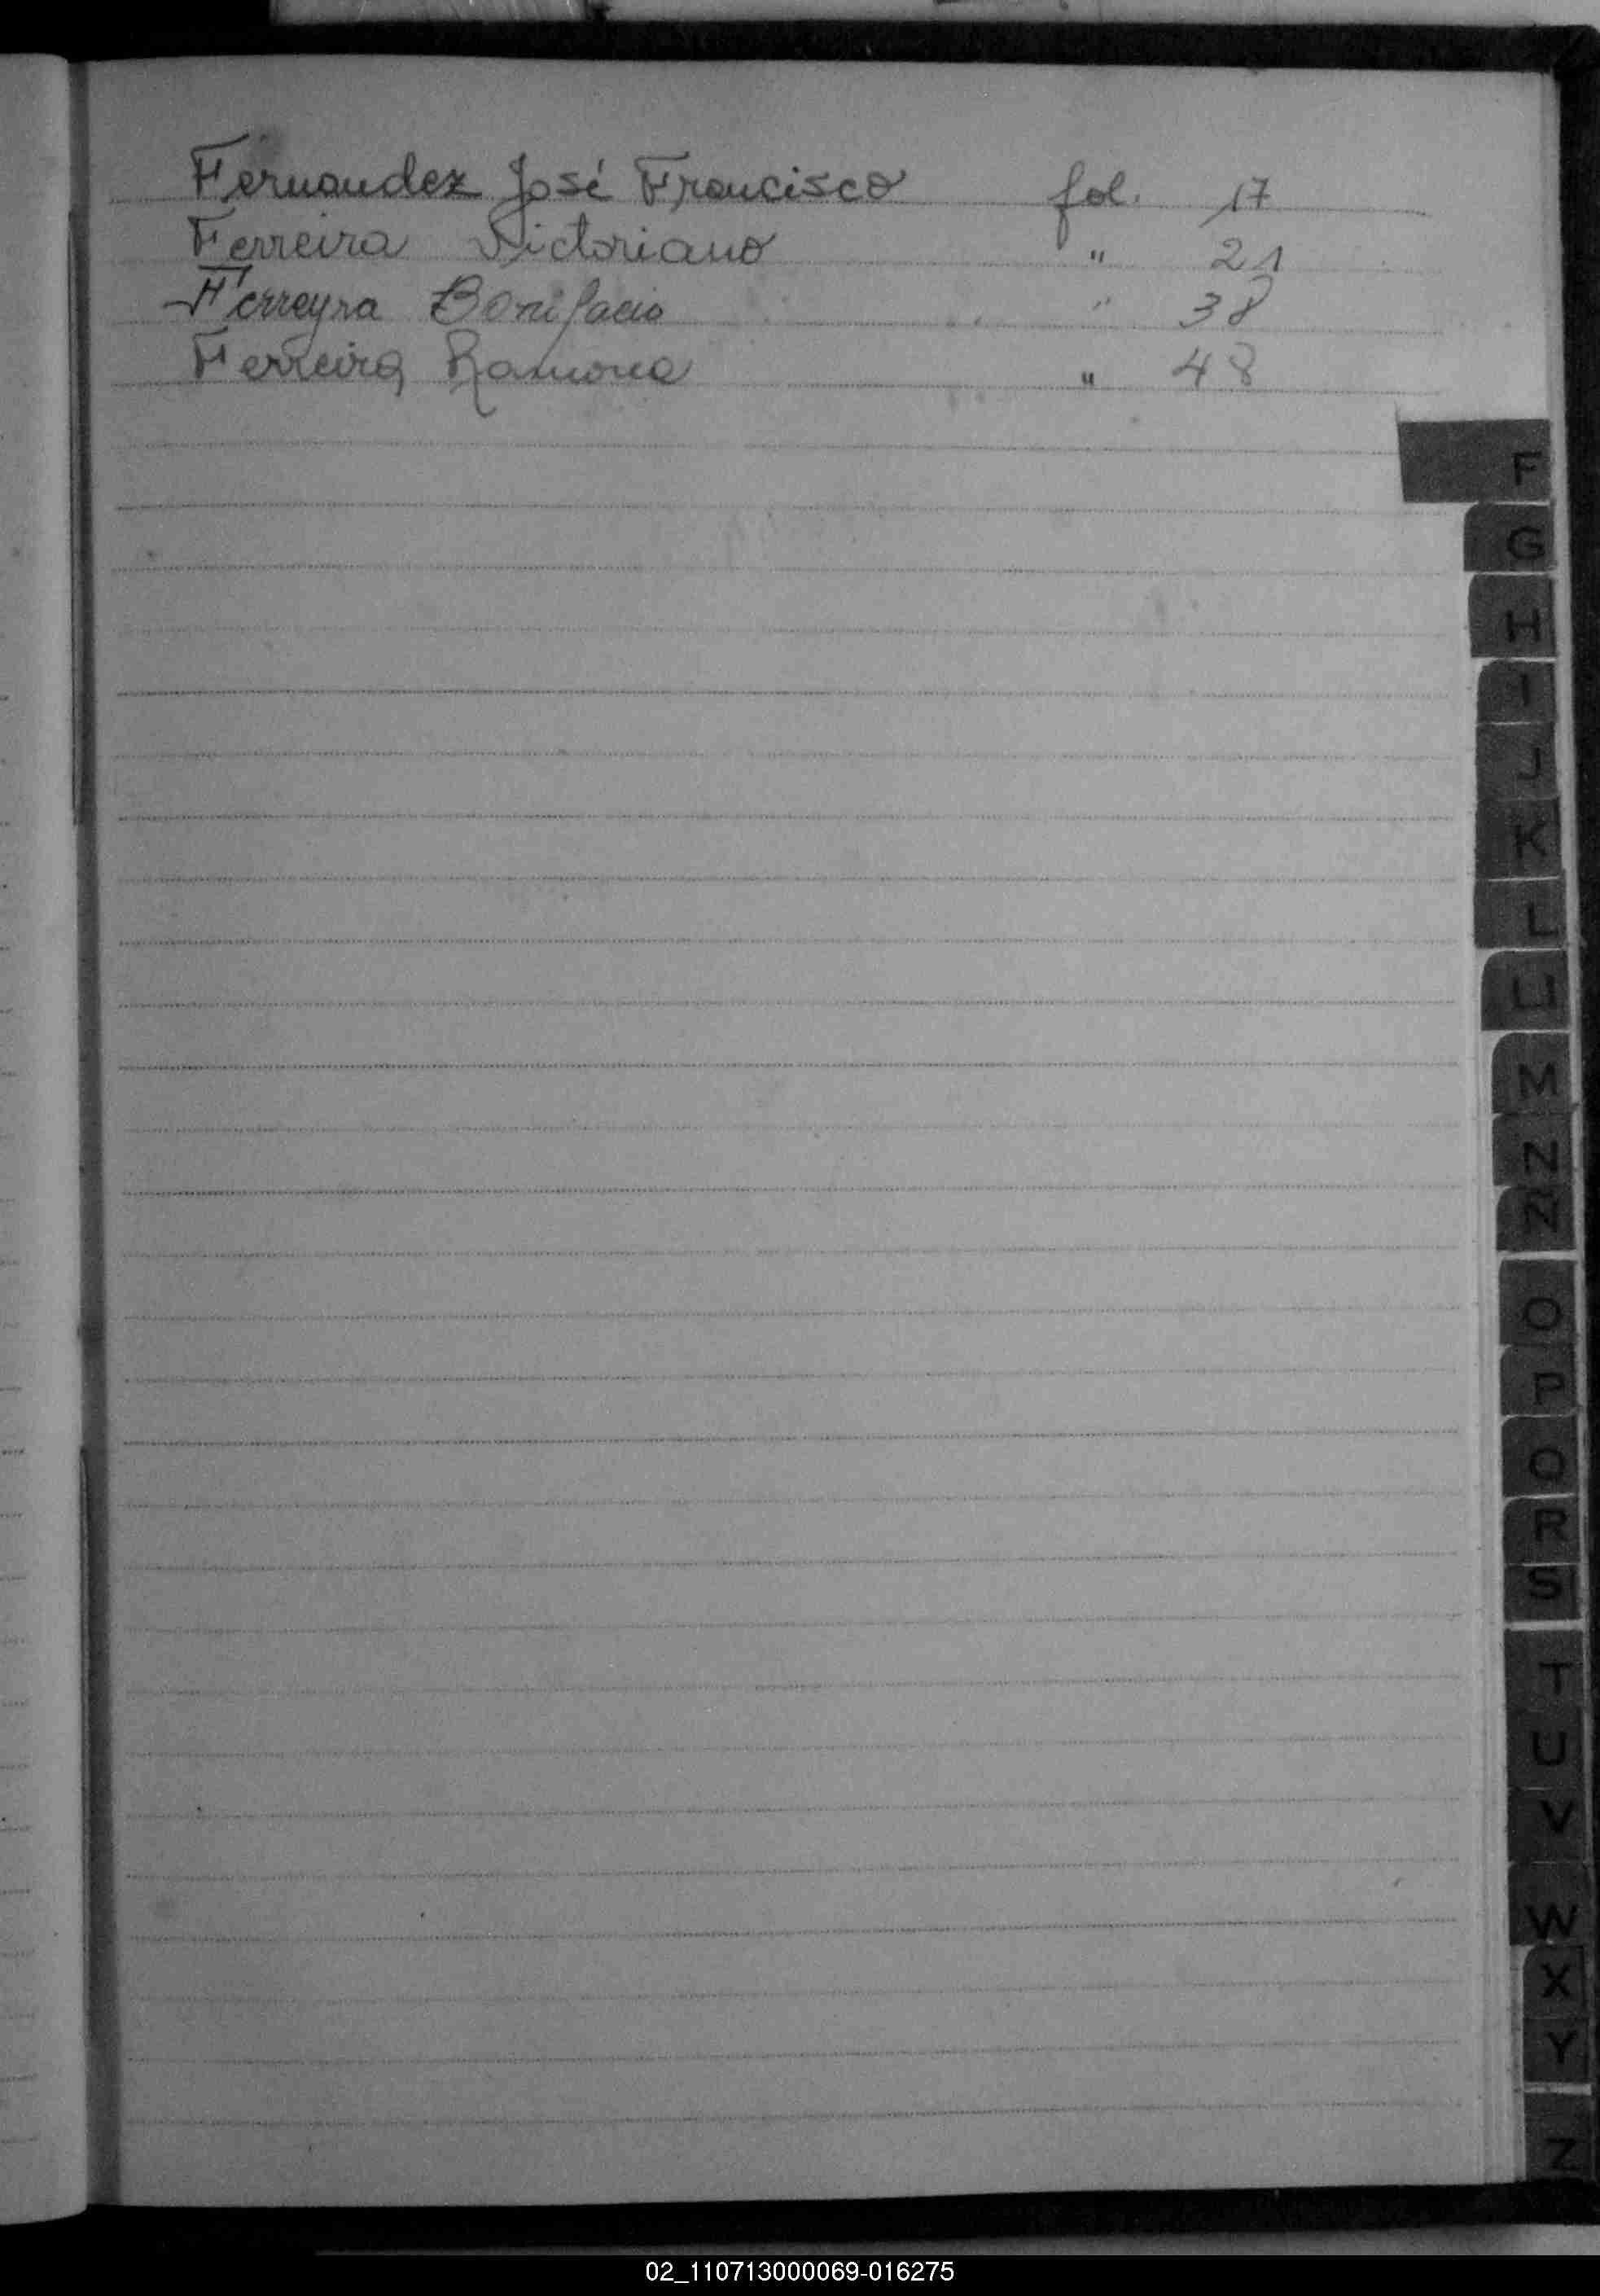 Fernandez José Francisco fol. 17
Ferreira Victoriano " 21
Ferreyra Bonifacio " 38
Ferreira Ramona " 48
F
G
H
I
J
K
L
LL
M
N
Ñ
O
P
Q
R
S
T
U
V
W
X
Y
Z
02_110713000069-016275